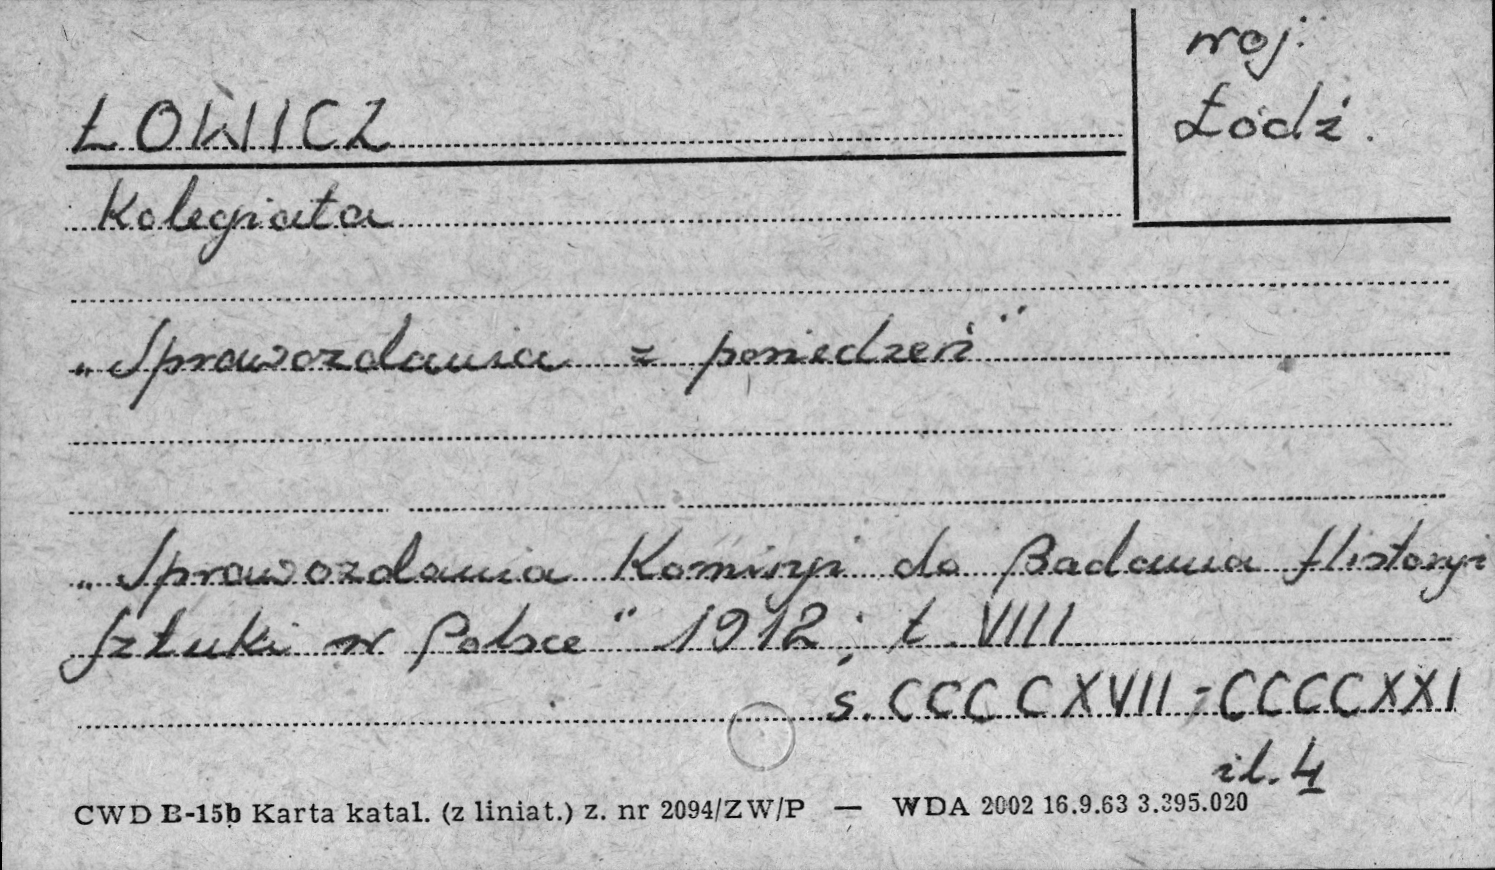 woj.
Łódź.
ŁOWICZ
Kolegiata
"Sprawozdania z poniedzeń"
"Sprawozdania Komisyi do Badania Historyi
Sztuki w Polsce" 1912; t. VIII
s. CCCCXVII-CCCCXXI
il. 4
CWD B-15b Karta katal. (z liniat.) z. nr 2094/ZW/P — WDA 2002 16.9.63 3.395.020